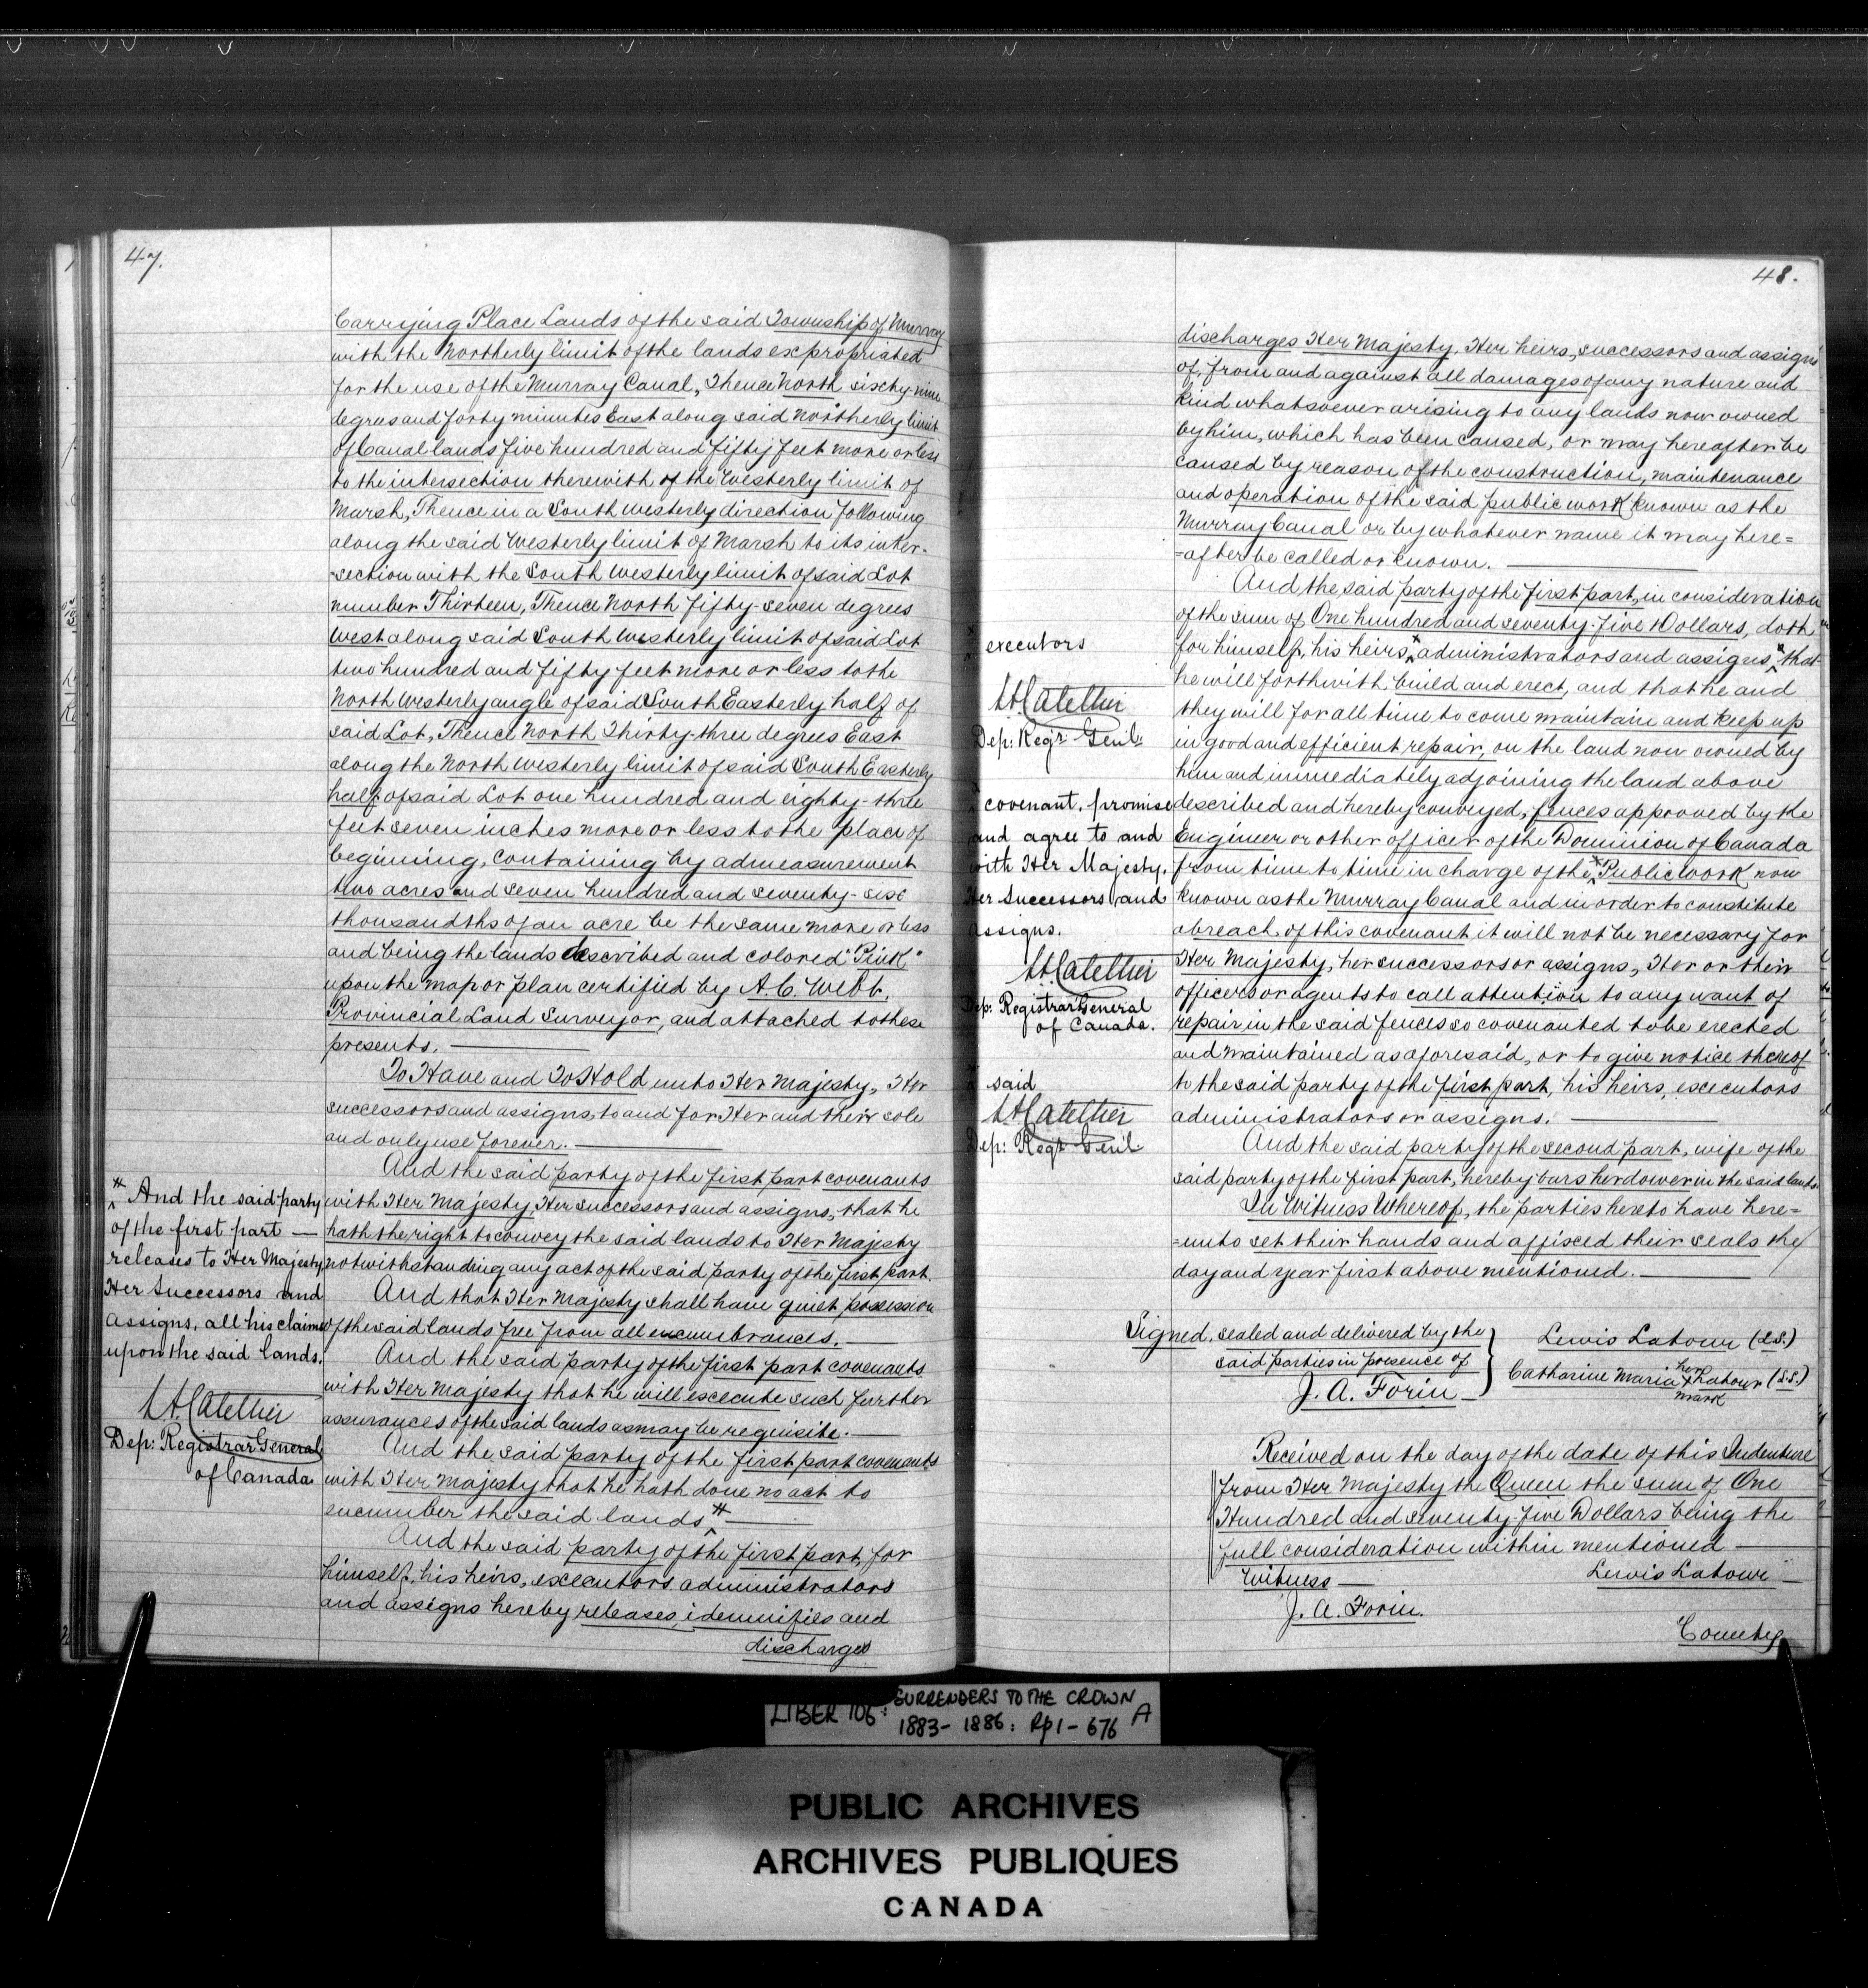 47.
Carrying Place Lands of the said Township of Murray
with the Northerly limit of the lands expropriated
for the use of the Murray Canal, Thence North sixty-nine
degrees and forty minutes East along said Northerly limit
of Canal lands five hundred and fifty feet more or less
to the intersection therewith of the Westerly limit of
Marsh, Thence in a South Westerly direction following
along the said Westerly limit of Marsh to its inter-
-section with the South Westerly limit of said Lot
number Thirteen, Thence North fifty-seven degrees
West along said South Westerly limit of said Lot
two hundred and fifty feet more or less to the
North Westerly angle of said South Easterly half of
said Lot, Thence North Thirty-three degrees East
along the North Westerly limit of said South Easterly
half of said Lot one hundred and eighty-three
feet seven inches more or less to the place of
beginning, containing by admeasurement
two acres and seven hundred and seventy-six
thousandths of an acre be the same more or less
and being the lands described and colored "Pink"
upon the map or plan certified by A. C. Webb,
Provincial Land Surveyor, and attached to these
presents.
To Have and To Hold unto Her Majesty, Her
successors and assigns, to and for Her and their sole
and only use forever.
And the said party of the first part covenants
with Her Majesty, Her successors and assigns, that he
hath the right to convey the said lands to Her Majesty
notwithstanding any act of the said party of the first part.
And that Her Majesty shall have quiet possession
of the said lands free from all encumbrances.
And the said party of the first part covenants
with Her Majesty that he will execute such further
assurances of the said lands as may be requisite.
And the said party of the first part covenants
with Her Majesty that he hath done no act to
encumber the said lands #
And the said party of the first part, for
himself, his heirs, executors administrators
and assigns hereby releases, idemnifies and
discharges
# And the said party
of the first part
releases to Her Majesty
Her Successors and
Assigns, all his claims
upon the said lands.
Dep: Registrar General
of Canada
48.
discharges Her Majesty, Her heirs, successors and assigns
of, from and against all damages of any nature and
kind whatsoever arising to any lands now owned
by him, which has been caused, or may hereafter be
caused by reason of the construction, maintenance
and operation of the said public work known as the
Murray Canal or by whatever name it may here=
=after be called or known.
And the said party of the first part, in consideration
of the sum of One hundred and seventy-five Dollars, doth
for himself, his heirs, x administrators and assigns x that
he will forthwith build and erect, and that he and
they will for all time to come maintain and keep up
in good and efficient repair, on the land now owned by
him and immediately adjoining the land above
described and hereby conveyed, fences approved by the
Engineer or other officer of the Dominion of Canada
from time to time in charge of the x Public Work now
known as the Murray Canal and in order to constitute
a breach of this covenant it will not be necessary for
Her Majesty, her successors or assigns, Her or their
officers or agents to call attention to any want of
repair in the said fences so covenanted to be erected
and maintained as aforesaid, or to give notice thereof
to the said party of the first part, his heirs, executors
administrators or assigns.
And the said party of the second part, wife of the
said party of the first part, hereby bars her dower in the said lands.
In Witness Whereof, the parties hereto have here=
=unto set their hands and affixed their seals the
day and year first above mentioned.
x executors
Dep: Regr Genl.
x covenant, promise
and agree to and
with Her Majesty,
Her Successors and
Assigns.
Dep: Registrar General
of Canada.
x said
Dep: Regr Genl
Signed, sealed and delivered by the
said parties in presence of
J. A. Forin
Lewis Latour (L.S.)
Catharine Maria her x mark Latour (L.S.)
Received on the day of the date of this Indenture
from Her Majesty the Queen the sum of One
Hundred and seventy-five Dollars being the
full consideration within mentioned
Witness
Lewis Latour
J. A. Forin.
County
LIBER 106: SURRENDERS TO THE CROWN
1883-1886: Pp 1-676 A
PUBLIC ARCHIVES
ARCHIVES PUBLIQUES
CANADA